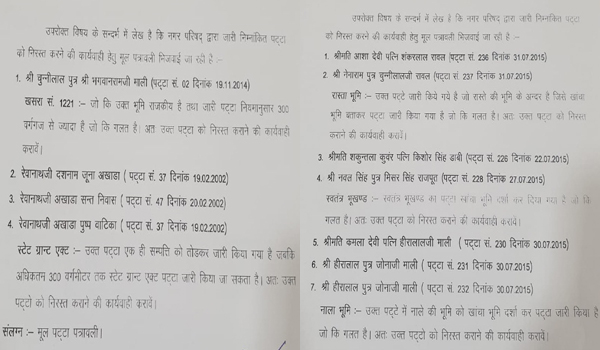 उपरोक्त विषय के सन्दर्भ में लेख है कि नगर परिषद् द्वारा जारी निम्नांकित पट्टा
को निरस्त करने की कार्यवाही हेतु मूल पत्रावली भिजवाई जा रही है :-
1. श्री चुन्नीलाल पुत्र श्री भगवानरामजी माली (पट्टा सं. 02 दिनांक 19.11.2014)
खसरा सं. 1221 :- जो कि उक्त भूमि राजकीय है तथा जारी पट्टा नियमानुसार 300
वर्गगज से ज्यादा है जो कि गलत है। अतः उक्त पट्टा को निरस्त कराने की कार्यवाही
करावें।
2. रेवानाथजी दशनाम जूना अखाडा ( पट्टा सं. 37 दिनांक 19.02.2002)
3. रेवानाथजी अखाडा सन्त निवास ( पट्टा सं. 47 दिनांक 20.02.2002)
4. रेवानाथजी अखाडा पुष्प वाटिका ( पट्टा सं. 37 दिनांक 19.02.2002)
स्टेट ग्रान्ट एक्ट :- उक्त पट्टा एक ही सम्पत्ति को तोडकर जारी किया गया है जबकि
अधिकतम 300 वर्गमीटर तक स्टेट ग्रान्ट एक्ट पट्टा जारी किया जा सकता है। अतः उक्त
पट्टो को निरस्त कराने की कार्यवाही करावें।
संलग्न :- मूल पट्टा पत्रावली।
उपरोक्त विषय के सन्दर्भ में लेख है कि नगर परिषद द्वारा जारी निम्नांकित पट्टा
को निरस्त करने की कार्यवाही हेतु मूल पत्रावली भिजवाई जा रही है :-
1. श्रीमति आशा देवी पत्नि शंकरलाल रावल (पट्टा सं. 236 दिनांक 31.07.2015)
2. श्री नेनाराम पुत्र चुन्नीलालजी रावल (पट्टा सं. 237 दिनांक 31.07.2015)
रास्ता भूमि :- उक्त पट्टे जारी किये गये है जो रास्ते की भूमि के अन्दर है जिसे खांचा
भूमि बताकर पट्टा जारी किया गया है जो कि गलत है। अतः उक्त पट्टो को निरस्त
कराने की कार्यवाही करावें।
3. श्रीमति शकुन्तला कुवंर पत्नि किशोर सिंह डाबी (पट्टा सं. 226 दिनांक 22.07.2015)
4. श्री नवत सिंह पुत्र मिसर सिंह राजपूत (पट्टा सं. 228 दिनांक 27.07.2015)
स्वतंत्र भूखण्ड :- स्वतंत्र भूखण्ड का पट्टा खांचा भूमि दर्शा कर दिया गया है जो कि
गलत है। अतः उक्त पट्टो को निरस्त कराने की कार्यवाही करावें।
5. श्रीमति कमला देवी पत्नि हीरालालजी माली ( पट्टा सं. 230 दिनांक 30.07.2015)
6. श्री हीरालाल पुत्र जोनाजी माली ( पट्टा सं. 231 दिनांक 30.07.2015)
7. श्री हीरालाल पुत्र जोनाजी माली ( पट्टा सं. 232 दिनांक 30.07.2015)
नाला भूमि :- उक्त पट्टे में नाले की भूमि को खांचा भूमि दर्शा कर पट्टा जारी किया है
जो कि गलत है। अतः उक्त पट्टो को निरस्त कराने की कार्यवाही करावें।